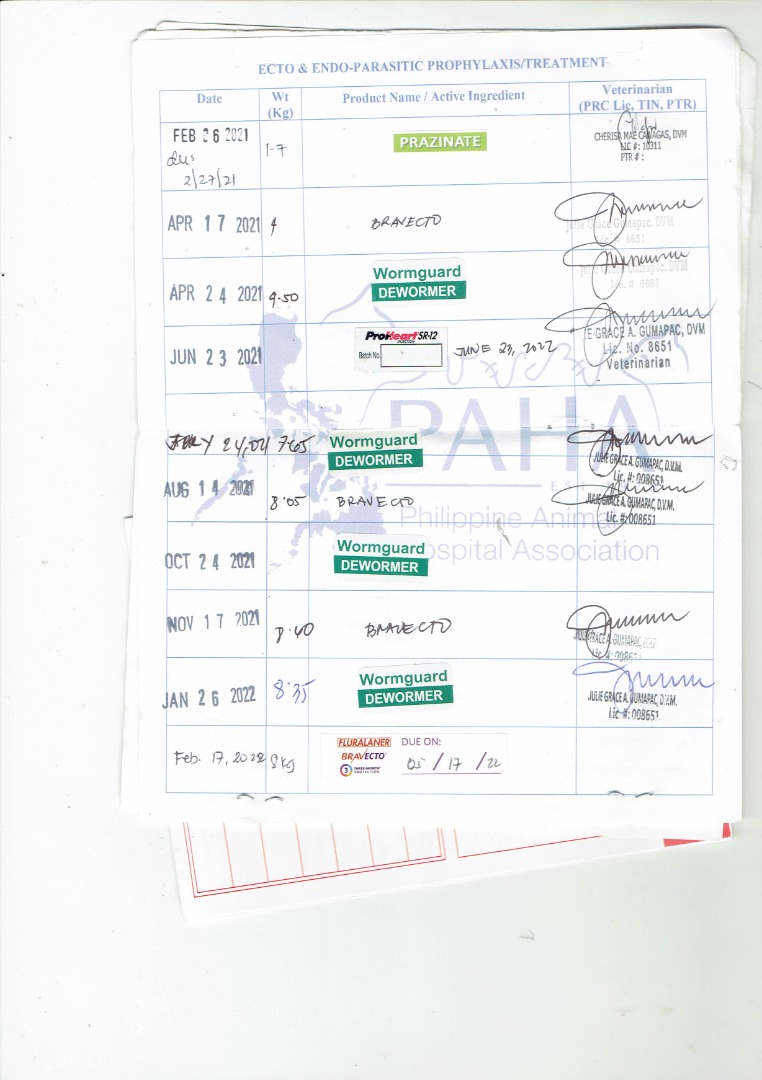 ECTO & ENDO-PARASITIC PROPHYLAXIS/TREATMENT
Date Wt (Kg) Product Name / Active Ingredient Veterinarian (PRC Lic, TIN, PTR)
FEB 26 2021 1-7 PRAZINATE CHERISA MAE CAWAGAS, DVM
LIC #: 10311
PTR #:
due
2/27/21
APR 17 2021 4 BRAVECTO Julie Grace Gumapac, DVM
Lic. # 8651
APR 24 2021 4.50 Wormguard Julie Grace Gumapac, DVM
DEWORMER Lic. # 8651
JUN 23 2021 ProHeart SR-12 JUNE 23, 2022 E GRACE A. GUMAPAC, DVM
INJECTION
Batch No. Lic. No. 8651
Veterinarian
PAHA
24, 7.65 Wormguard
DEWORMER JULIE GRACE A. GUMAPAC, D.V.M.
Lic. #: 008651
AUG 14 2021 8.05 BRAVECTO JULIE GRACE A. GUMAPAC, D.V.M.
Lic. #: 008651
EST
Philippine Animal
Hospital Association
OCT 24 2021 Wormguard
DEWORMER
NOV 17 2021 8.40 BRAVECTO JULIE GRACE A. GUMAPAC, D.V.M.
Lic #: 008651
JAN 26 2022 8.35 Wormguard
DEWORMER JULIE GRACE A. GUMAPAC, D.V.M.
Lic #: 008651
Feb. 17, 2022 8kg FLURALANER DUE ON:
BRAVECTO 05 / 17 / 22
3 THREE-MONTH PROTECTION